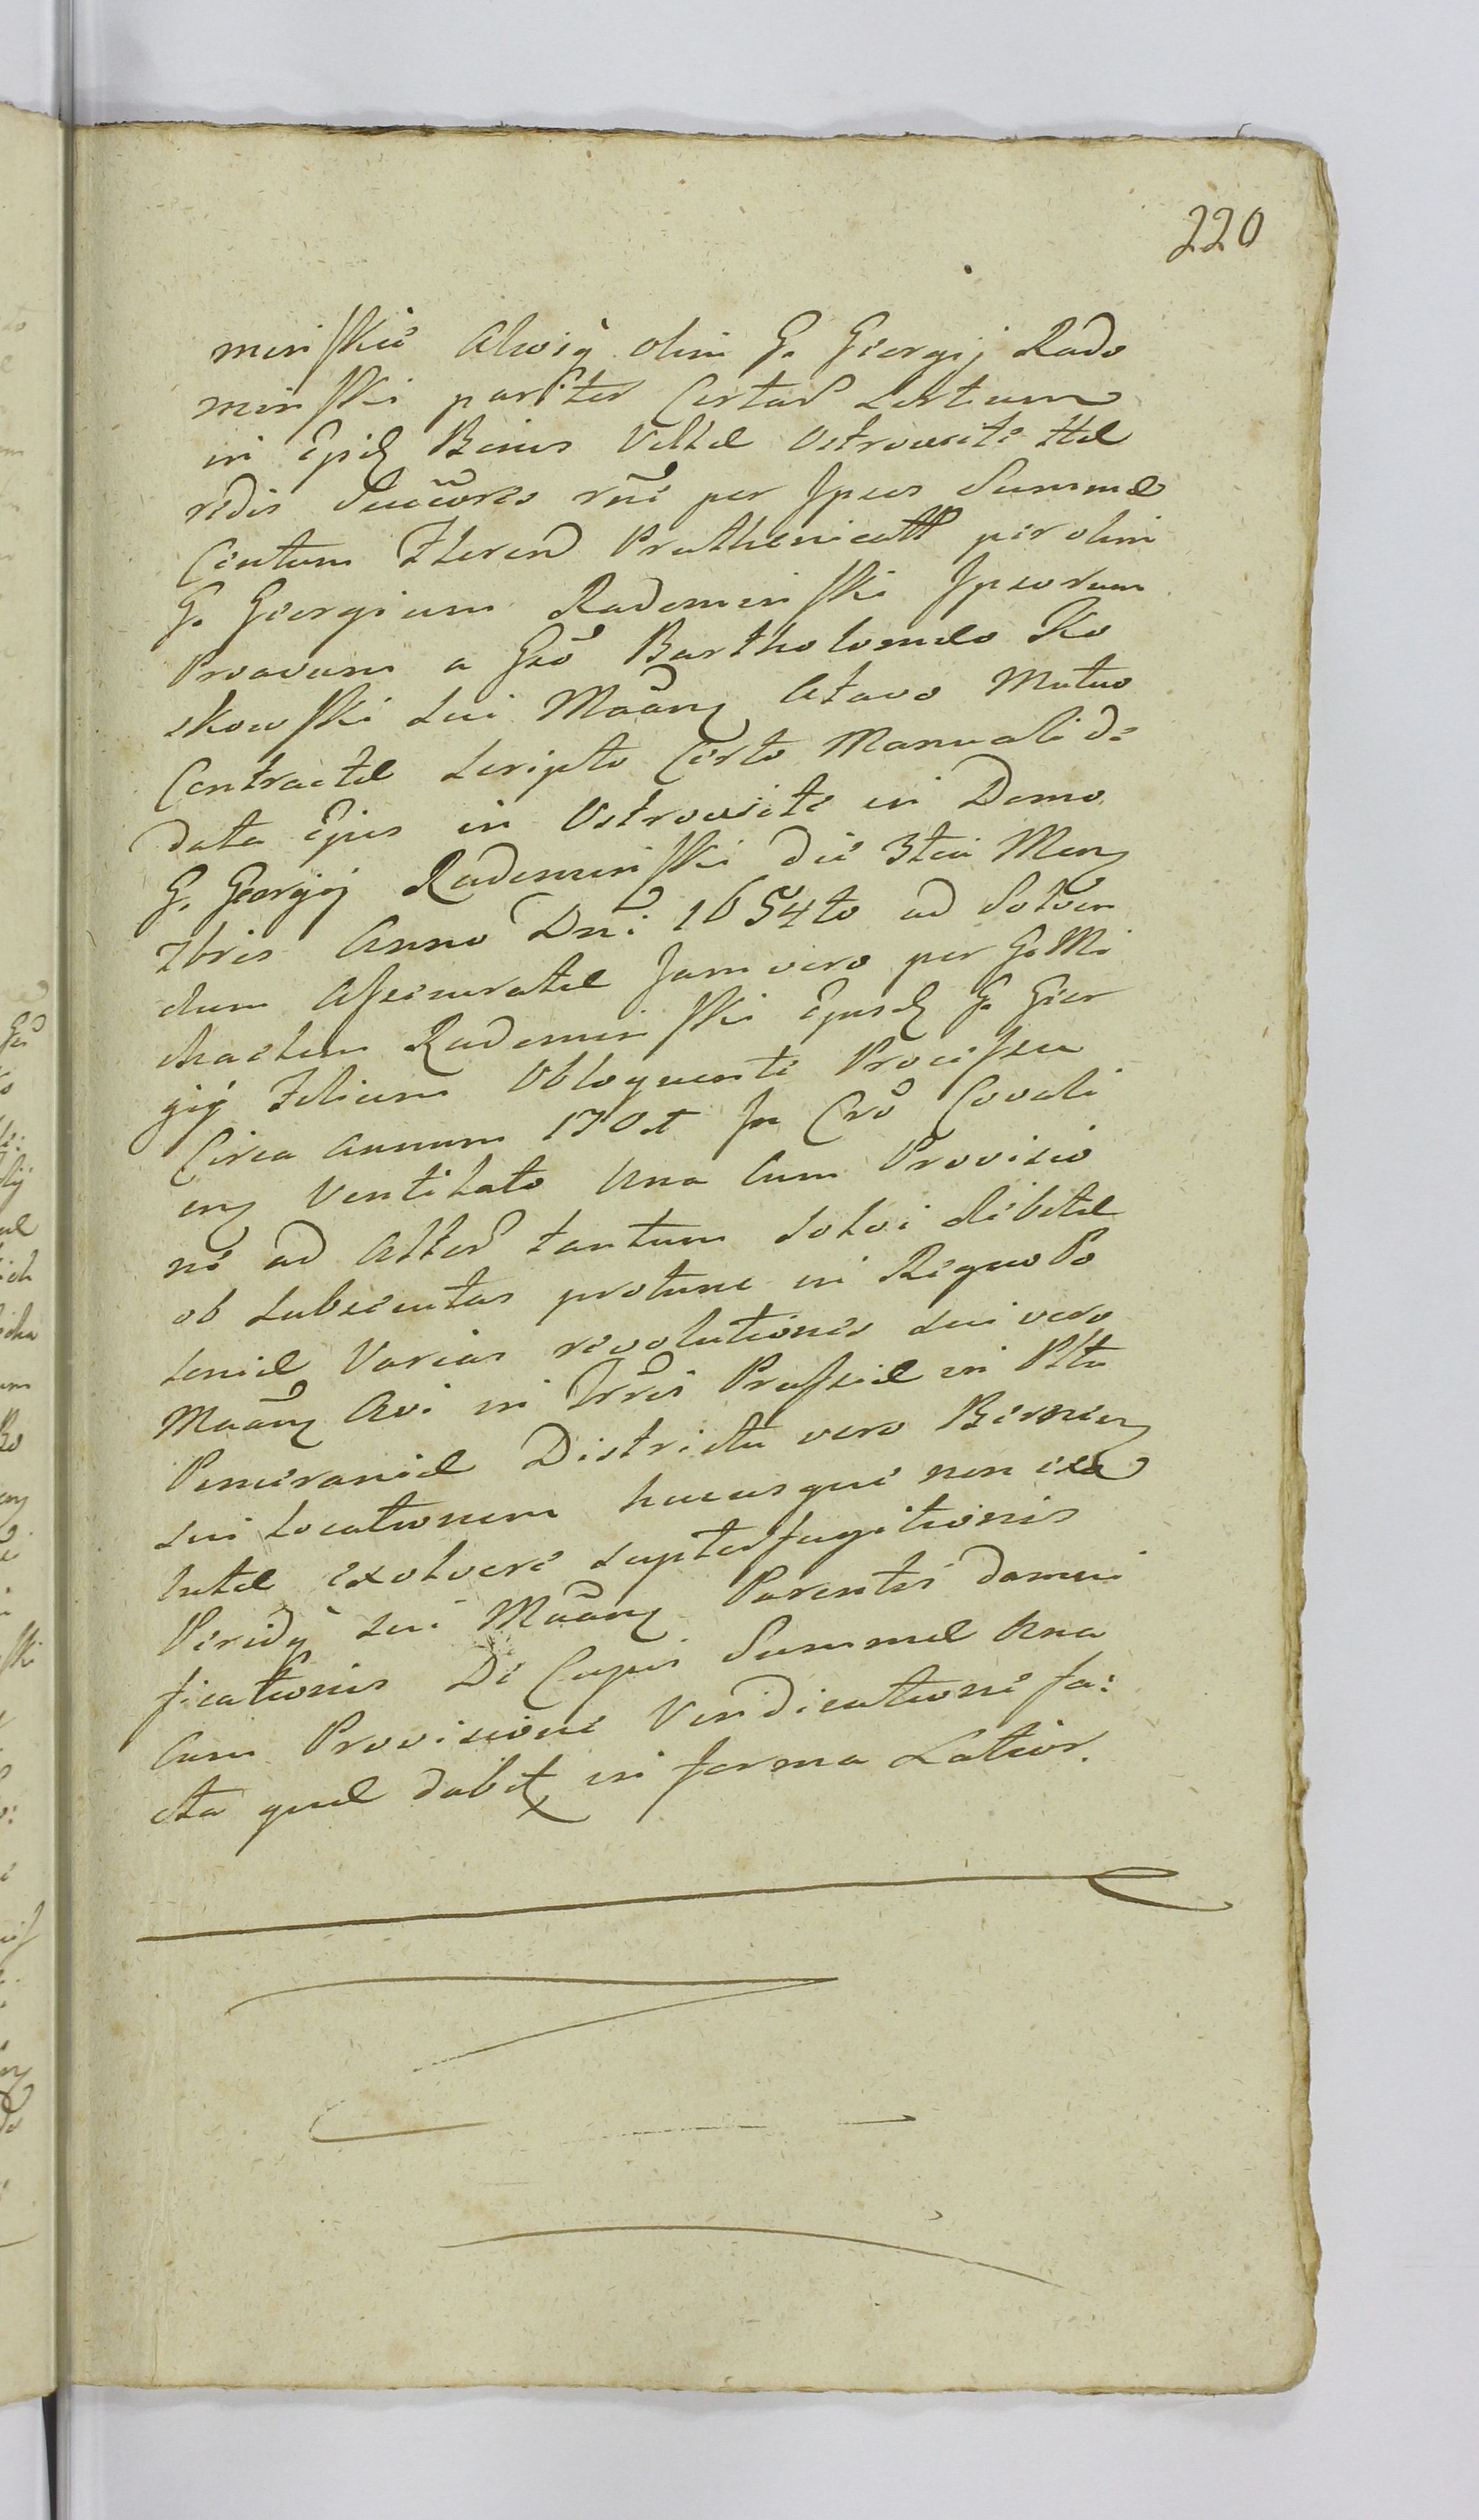 220
minskie Alvię olim G. Georgij Rado
minski pariter Certar Sortium
in Epię Bonis Villæ Ostrowite Hæ
redis Succores rñe per Ipsos Summæ
Centum Floren Pruthenicall per olim
G. Georgium Radominski Ipsorum
Proavum a Gso Bartholomæo Ko
skowski sui Maãnę Atavo Mutuo
Contractæ Scripto Certo Manuali de
data Ejus in Ostrowite in Domo
G. Georgij Radominski die 3tia Menę
7bris Anno Dni 1654to ad Solven
dum Assecuratæ Jam vero per G. Mi
chaelem Radominski Ejusdę G. Geor
gij Filium Obloquente Processu
Circa annum 170 In Cro Covali
enę Ventilato Una Cum Provisio
ne ad Alter tantum Solvi debitæ
ob subsecutas protunc in Regno Po
loniæ Varias revolutiones sui vero
Maãnę Avi in Trris Prussiæ in Pltu
Pomeraniæ Districtu vero Bernenę
sui locationem hucusque non exo
lutæ exolvere supter fugitionis
Peridę sui Maãnę Parentis damni
ficationis De Cujus Summæ Una
Cum Provisione Vendicatione fa:
cta quæ dabitę in forma Latior.